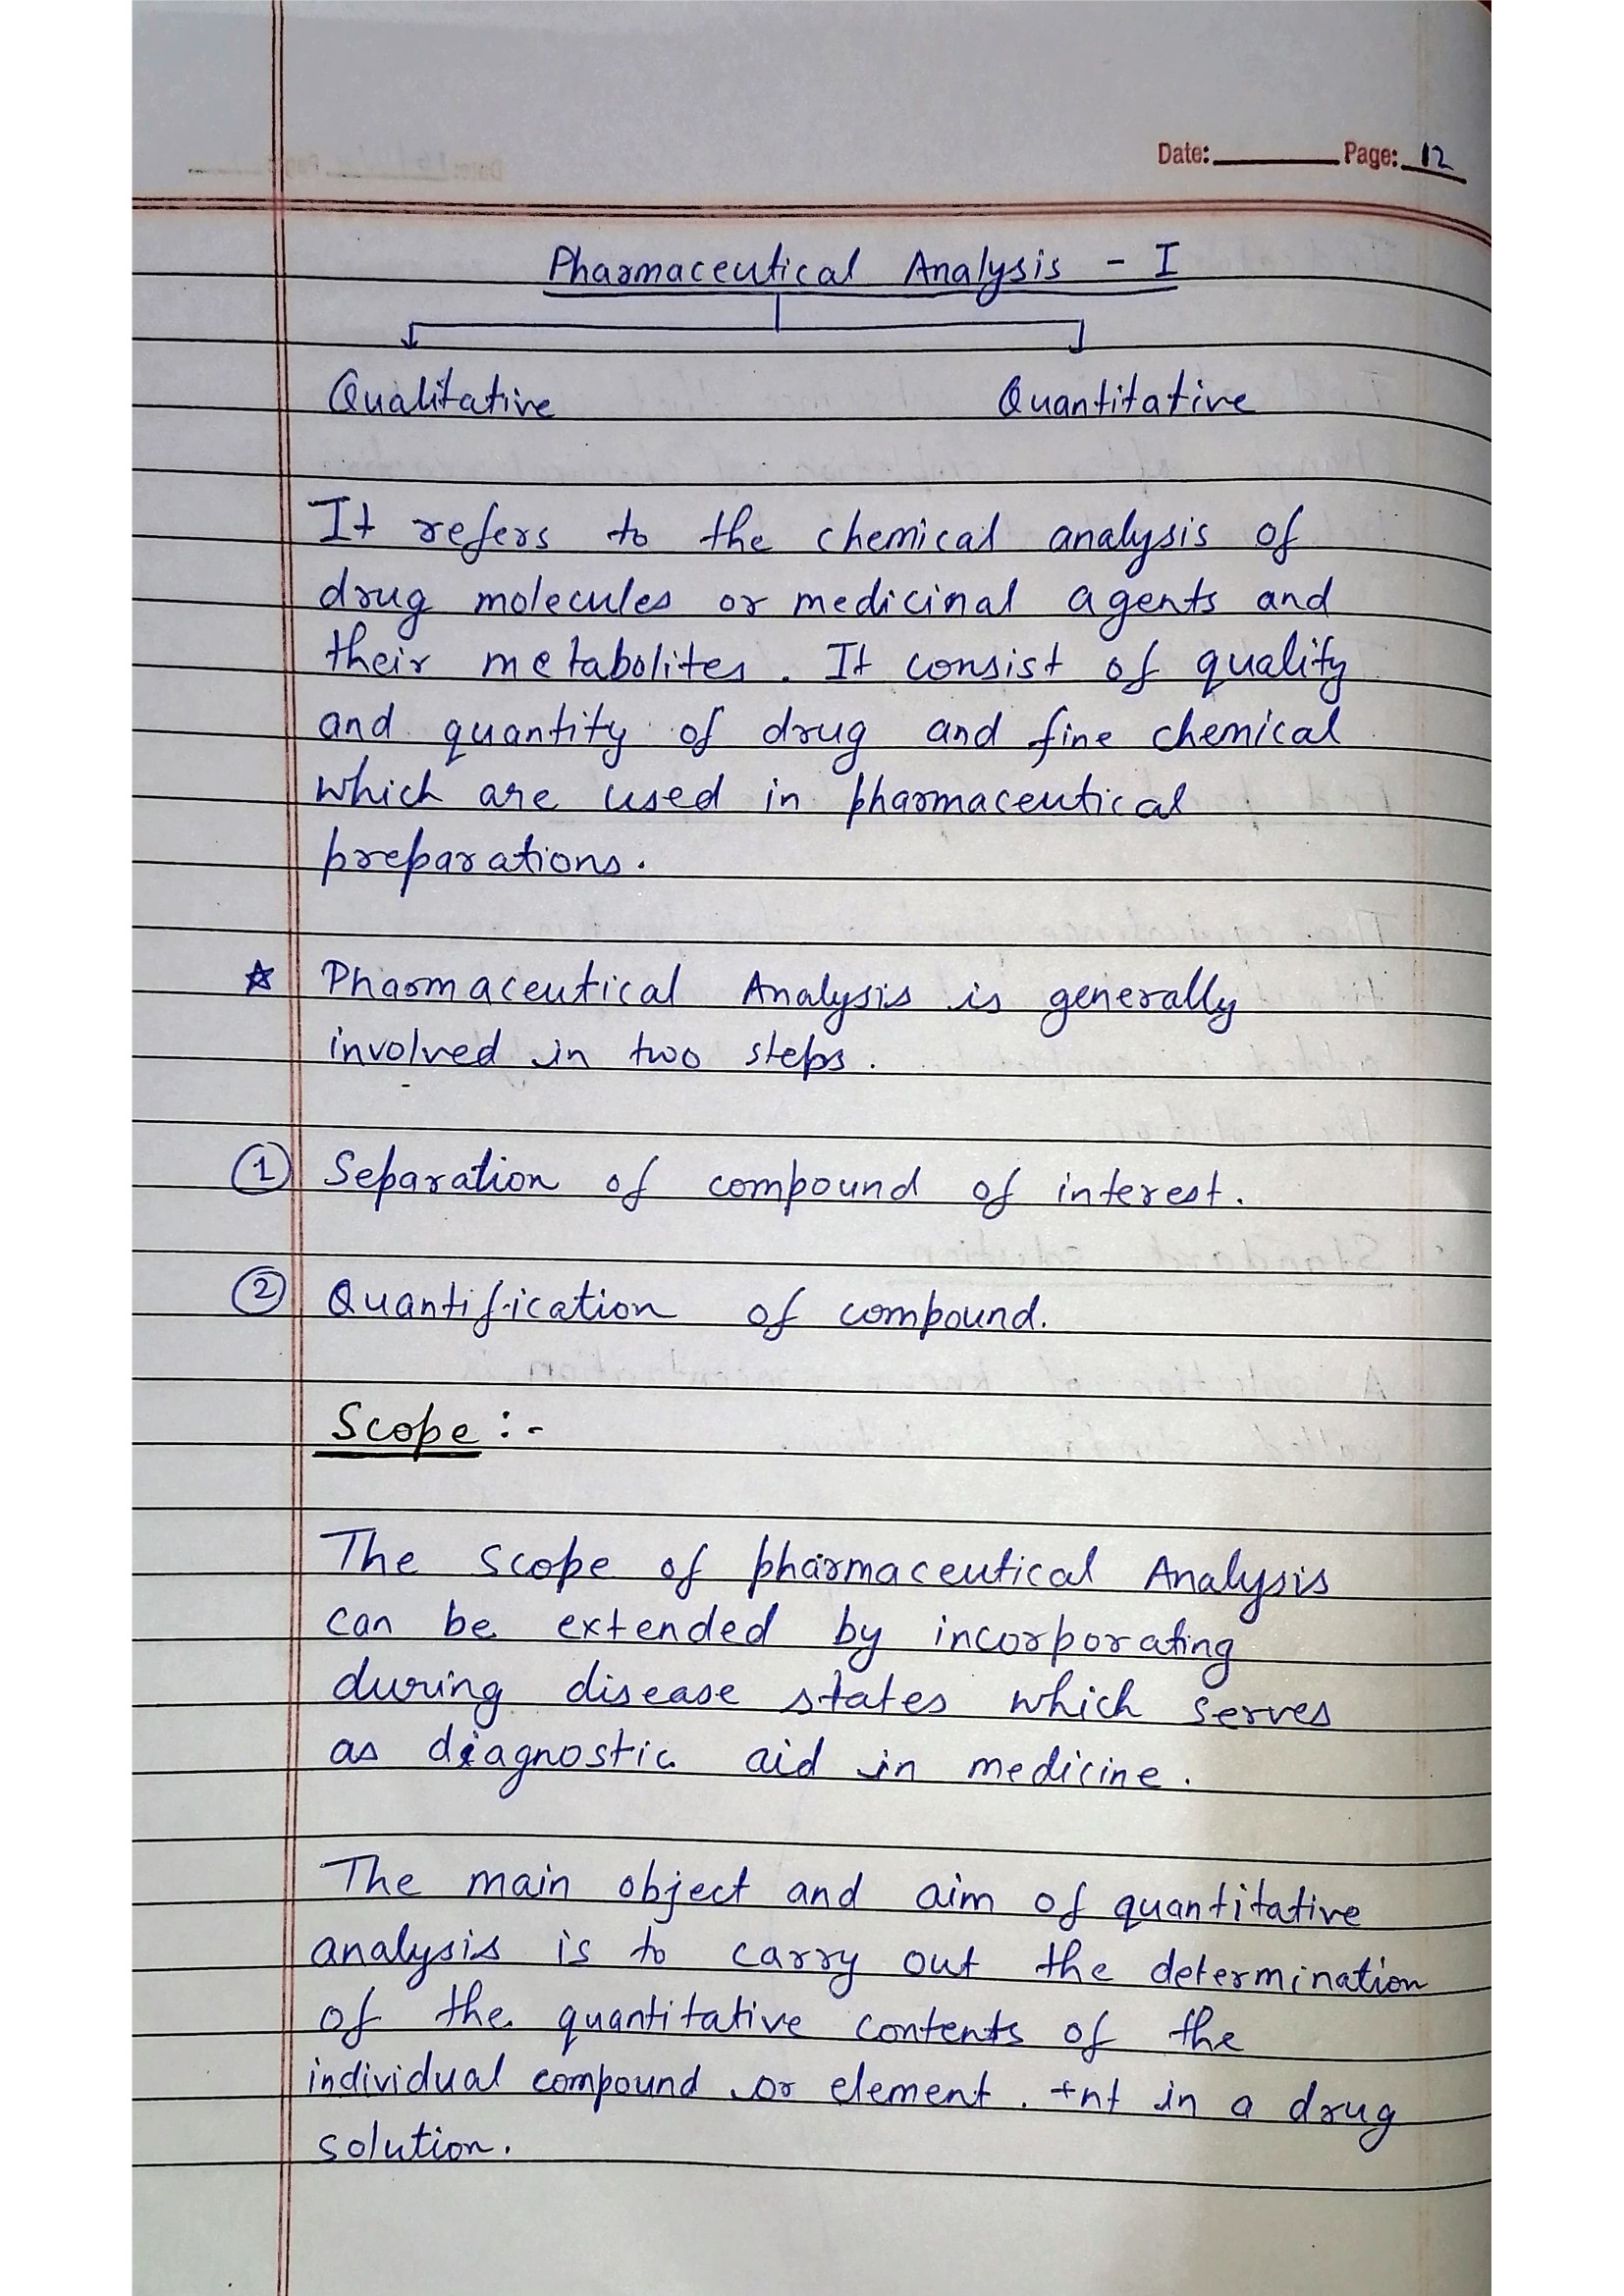 Date: Page: 12
Pharmaceutical Analysis - I
Qualitative Quantitative
It refers to the chemical analysis of
drug molecules or medicinal agents and
their metabolites. It consist of quality
and quantity of drug and fine chemical
which are used in pharmaceutical
preparations.
☆ Pharmaceutical Analysis is generally
involved in two steps.
① Separation of compound of interest.
② Quantification of compound.
Scope :-
The scope of pharmaceutical Analysis
can be extended by incorporating
during disease states which serves
as diagnostic aid in medicine.
The main object and aim of quantitative
analysis is to carry out the determination
of the quantitative contents of the
individual compound or element. +nt in a drug
solution.